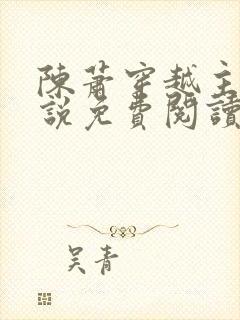 陳蕭穿越主
說免費閱讀
吴青